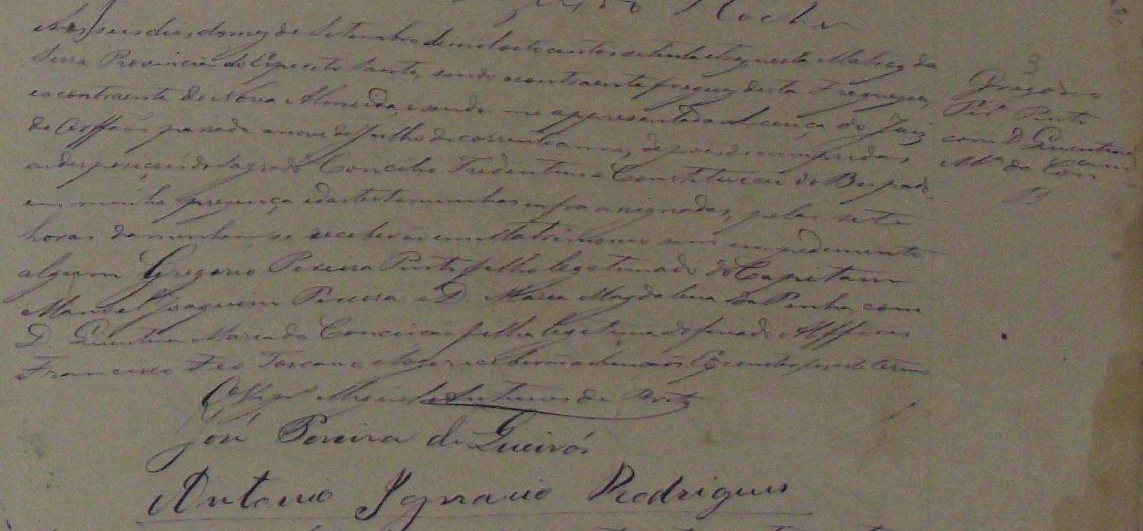 Rocha
Aos seis dias do mez de Setembro de mil oito centos setenta e tres, nesta Matriz da
Serra Provincia do Espirito Santo, sendo o contraente freguez desta Freguezia,
e a contraente de Nova Almeida, e sendo me appresentada licença do Juiz
de Orffãos passada a nove de Julho do corrente anno, depois de cumpridas
as desposições do Sagrado Concilio Tredentino e Constituição do Bispado
em minha presença e das testemunhas infra assignadas, pelas sete
horas da manhan se receberão em Matrimonio sem impedimento
algum Gregorio Pereira Pinto filho legitimado do Capitam
Manoel Joaquim Pereira e D. Maria Magdalena da Penha, com
D. Quintina Maria da Conceicao filha legitima do finado Alfferes
Francisco Feo Toscano, e logo receberão as bençãos. E para constar fiz este termo
O Vigr.o Antunes de Brito
José Pereira de Queirós
Antonio Ignacio Rodrigues
3
Gregorio
Per.a Pinto
com D. Quintina
M.a da Con
B